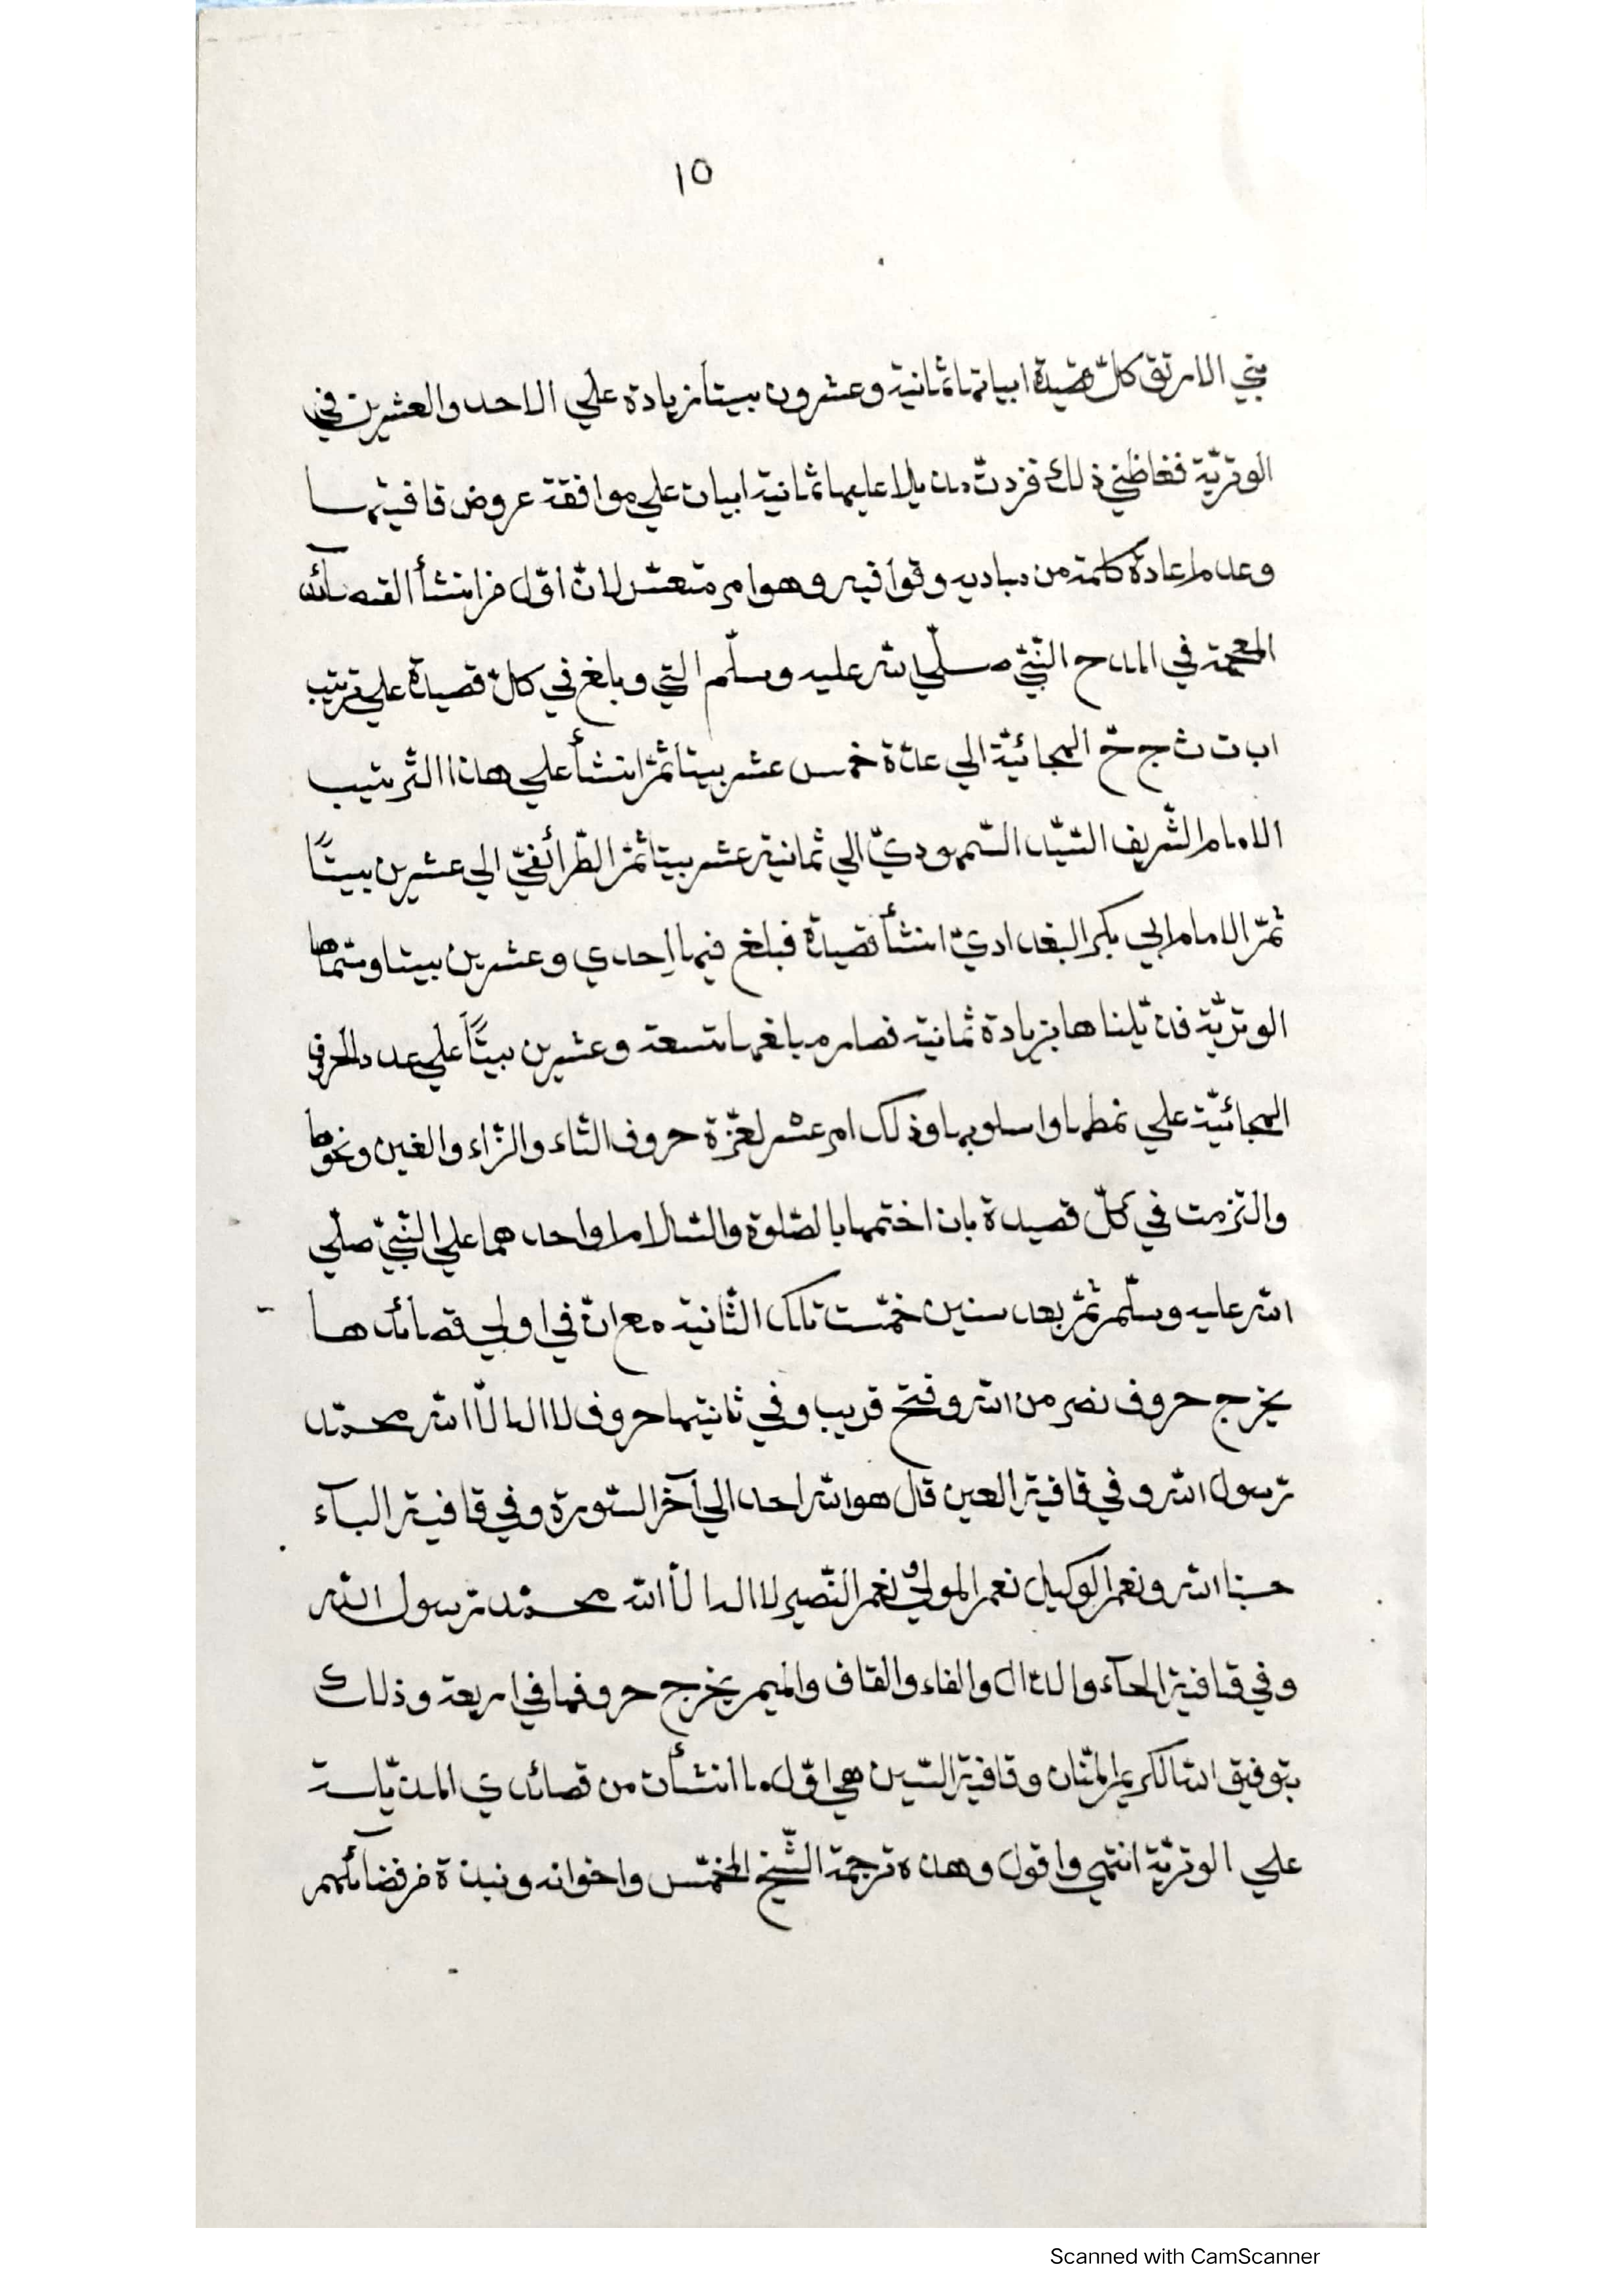 ١٥
بني الارتق كلّ قصيدة ابياتها ثمانية وعشرون بيتا زيادة علي الاحد والعشرين في
الوتريّة فغاظني ذلك فزدتّ من يلا عليها ثمانية ابيات علي موافقة عروض قافيتها
وعدم اعادة كلمة من مباديه وقوافيه وهو امر متعسّر لانّ اوّل من انشأ القصآئد
المعجمة في المدح النّبيّ صلّي الله عليه وسلّم التي وبلغ في كلّ قصيدة علي ترتيب
اب ت ث ج حّ الهجائيّة الي عدّة خمس عشر بيتا ثمّ انشأ علي هذا التّرتيب
الامام الشّريف السّيّد السّمهوديّ الي ثمانية عشر بيتا ثمّ الطّرائفيّ الي عشرين بيتًا
ثمّ الامام ابي بكر البغداديّ انشأ قصيدة فبلغ فيها احدي وعشرين بيتا وسمّاها
الوتريّة فذيّلناها بزيادة ثمانية فصار مبلغها تسعة وعشرين بيتًا علي عدد الحرفي
الهجائيّة علي نمطها واسلوبها وذلك امر عسر لعزّة حروف الثاء والزّاء والغين ونحوها
والتزمت في كلّ قصيدة بان اختمها بالصّلوة والسّلام او احدهما علي النّبيّ صلّي
الله عليه وسلّم ثمّ بعد سنين خمّست تلك الثّانية مع انّ في اولي قصائدها
يخرج حروف نصر من الله وفتح قريب وفي ثانيتها حروف لا اله الّا الله محمّد
رّسول الله وفي قافية العين قال هو الله احد الي آخر السّورة وفي قافية البآء
حسبنا الله ونعم الوكيل نعم المولي ونعم النّصير لا اله الّا الله محمّد رّسول الله
وفي قافية الحآء والدّال والفاء والقاف والميم يخرج حروفها في اربعة وذلك
بتوفيق الله الكريم المنّان وقافية السّين هي اوّل ما انشأت من قصائدي المذيّلة
علي الوتريّة انتهي واقول وهذه ترجمة الشّيخ المخمّس واخوانه ونبذة من فضآئلهم
Scanned with CamScanner